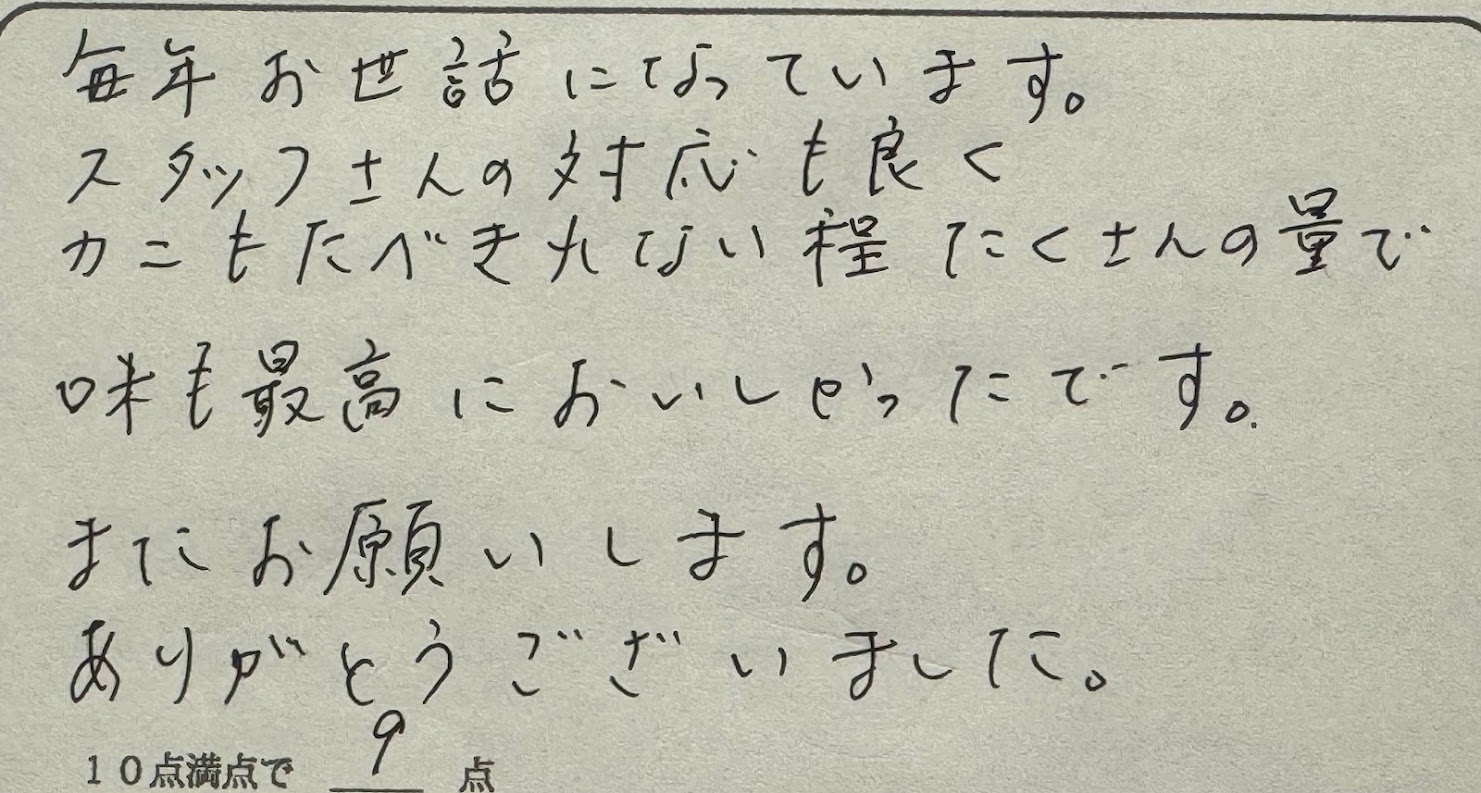 毎年お世話になっています。
スタッフさんの対応も良く
カニもたべきれない程たくさんの量で
味も最高においしかったです。
またお願いします。
ありがとうございました。
10点満点で 9 点